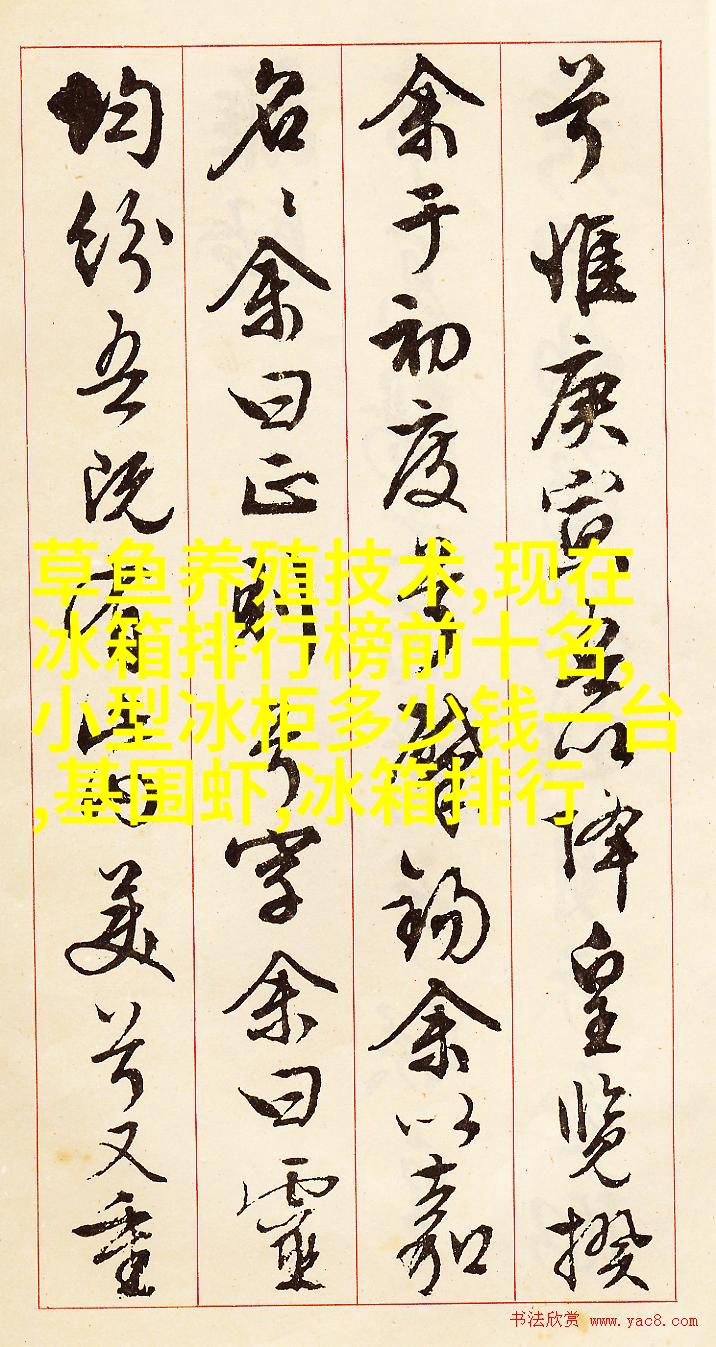 兮惟庚寅吾以降皇覽揆
余于初度兮肇錫余以嘉
名〻余曰正則兮字余曰靈
均紛吾既有此內美兮又重
草鱼养殖技术,现在
冰箱排行榜前十名,
小型冰柜多少钱一台
,基围虾,冰箱排行
书法欣赏 www.yac8.com